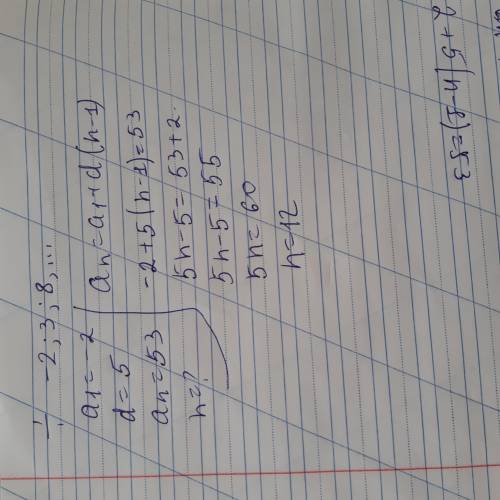 ÷ -2; 3; 8, ...
a1 = -2
d = 5
an = 53
n = ?
an = a1 + d(n-1)
-2+5(n-1)=53
5n-5=53+2.
5n-5=55
5n=60
n=12